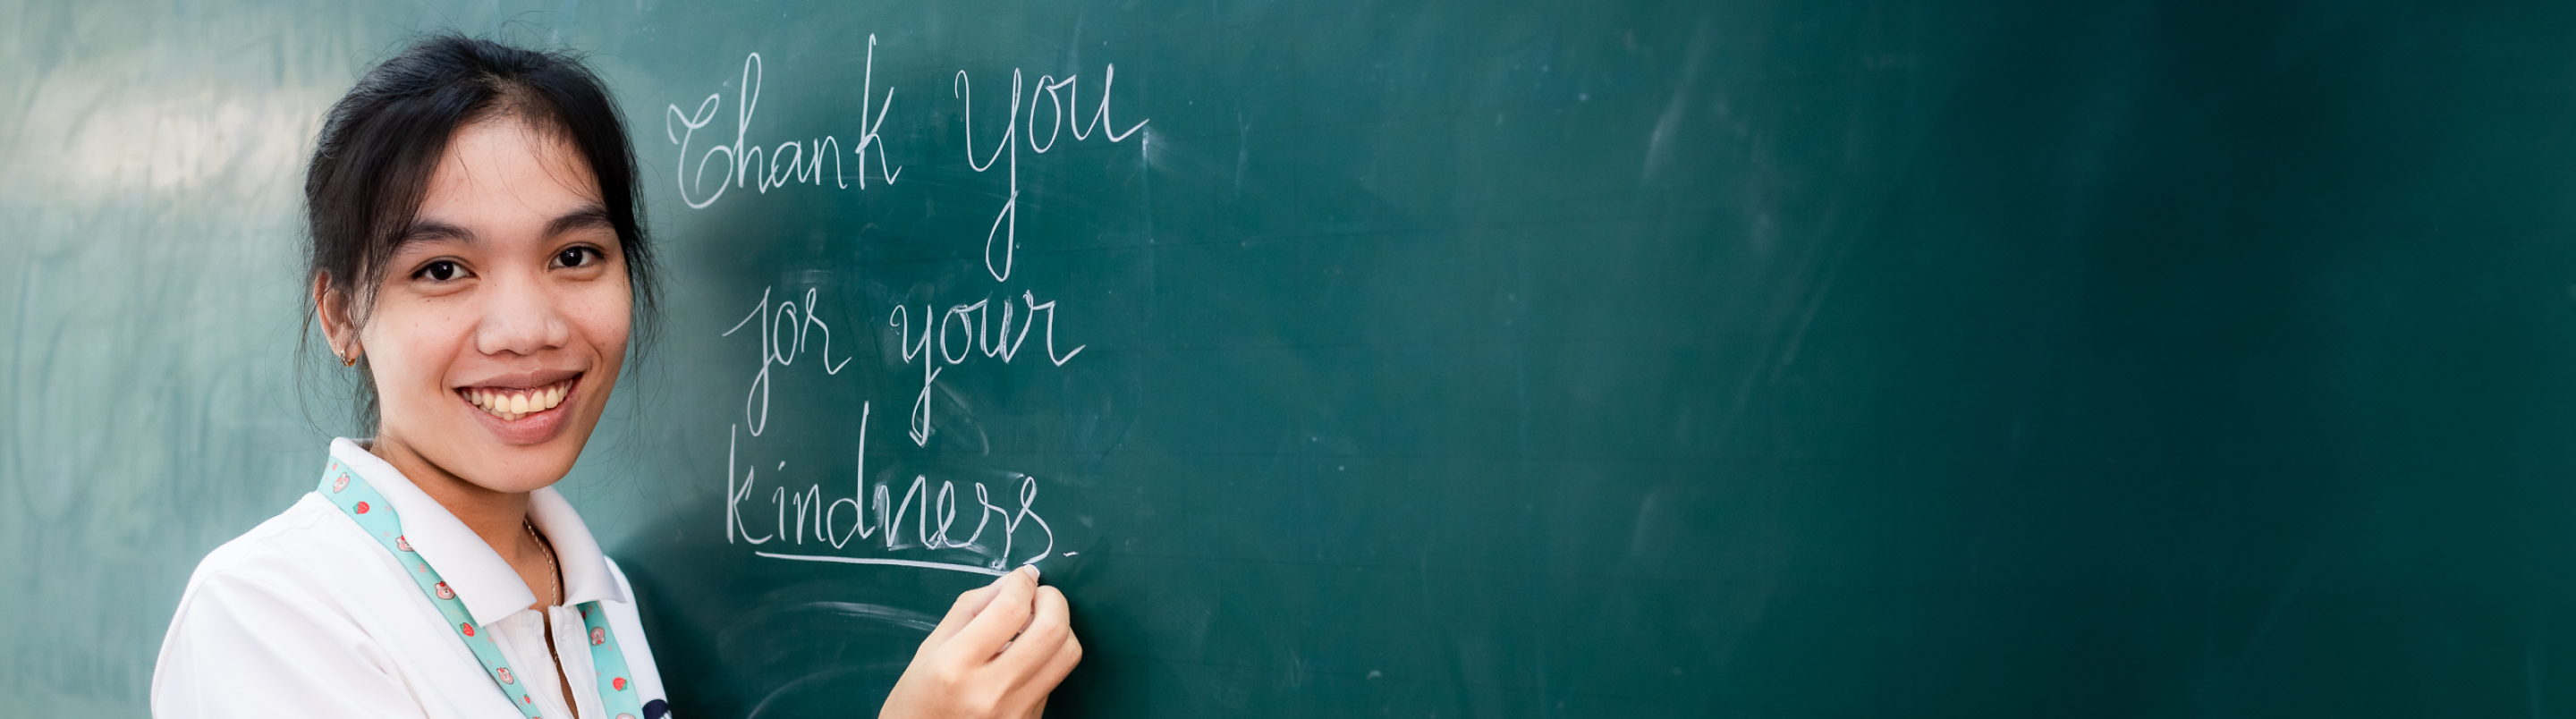 Thank you
for your
kindness.